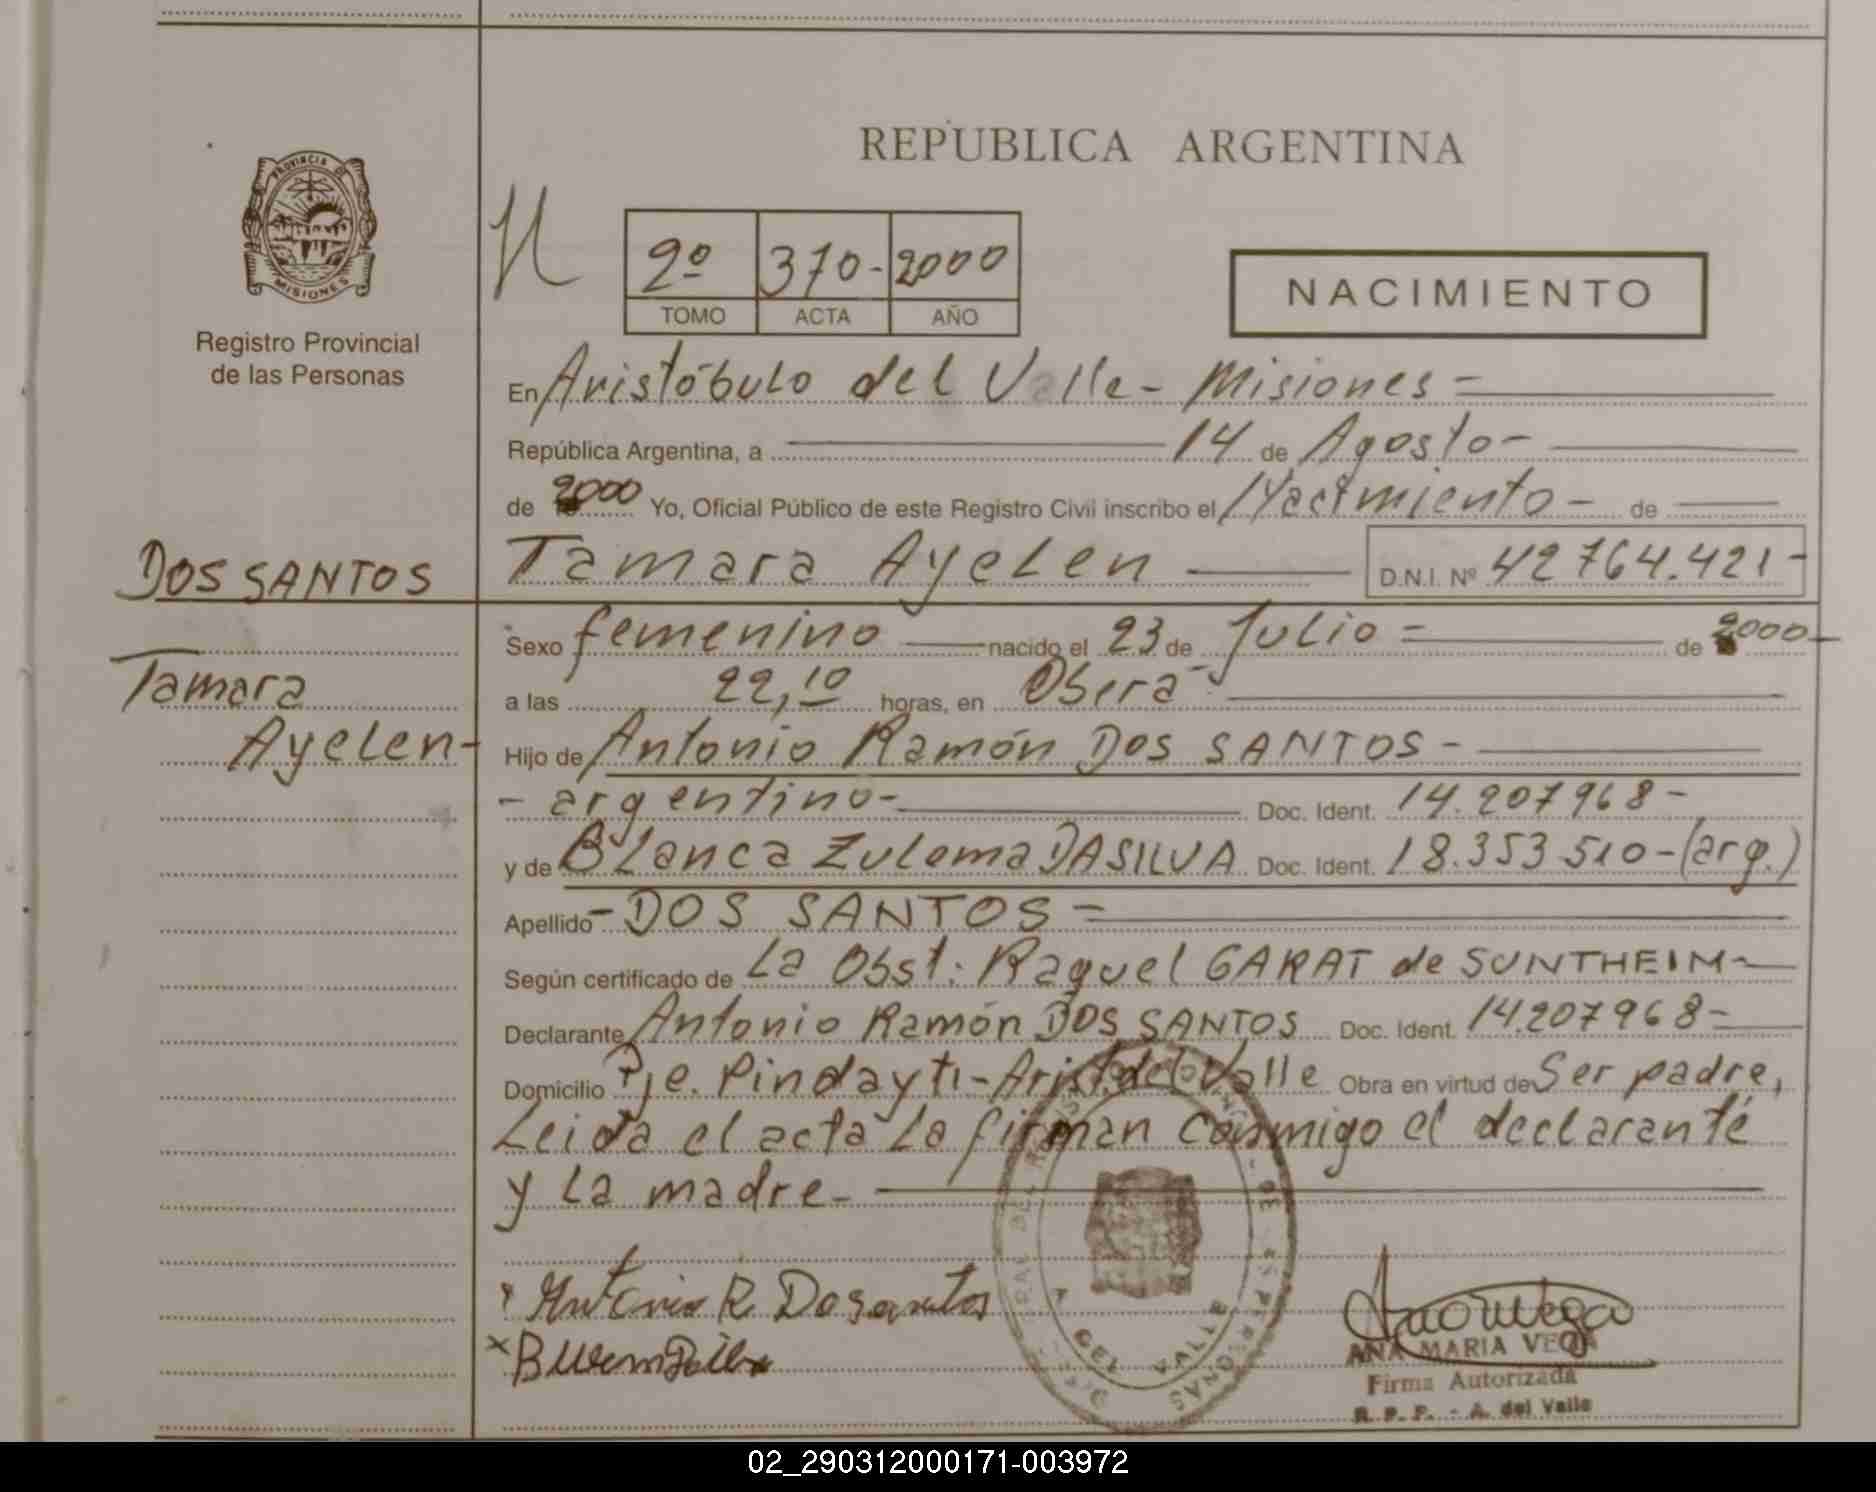 REPUBLICA ARGENTINA
PROVINCIA DE
MISIONES
Registro Provincial
de las Personas
2º 370- 2000
TOMO ACTA AÑO
NACIMIENTO
En Aristóbulo del Valle - Misiones -
República Argentina, a 14 de Agosto -
de 2000 Yo, Oficial Público de este Registro Civil inscribo el Nacimiento - de
DOS SANTOS
Tamara Ayelen D.N.I. Nº 42764.421-
Sexo femenino nacido el 23 de Julio - de 2000
Tamara
a las 22,10 horas, en Oberá -
Ayelen-
Hijo de Antonio Ramón DOS SANTOS -
- argentino - Doc. Ident. 14.207968-
y de Blanca Zulema DASILVA Doc. Ident. 18.353510-(arg.)
Apellido - DOS SANTOS -
Según certificado de La Obst: Raquel GARAT de SUNTHEIM-
Declarante Antonio Ramón DOS SANTOS Doc. Ident. 14.207968-
Domicilio Pje. Pindayti - Arist. del Valle Obra en virtud de Ser padre,
Leida el acta La firman conmigo el declarante
y La madre-
Antonio R Dosantos
DEL VALLE
ANA MARIA VEGA
Firma Autorizada
R. P. P. - A. del Valle
02_290312000171-003972